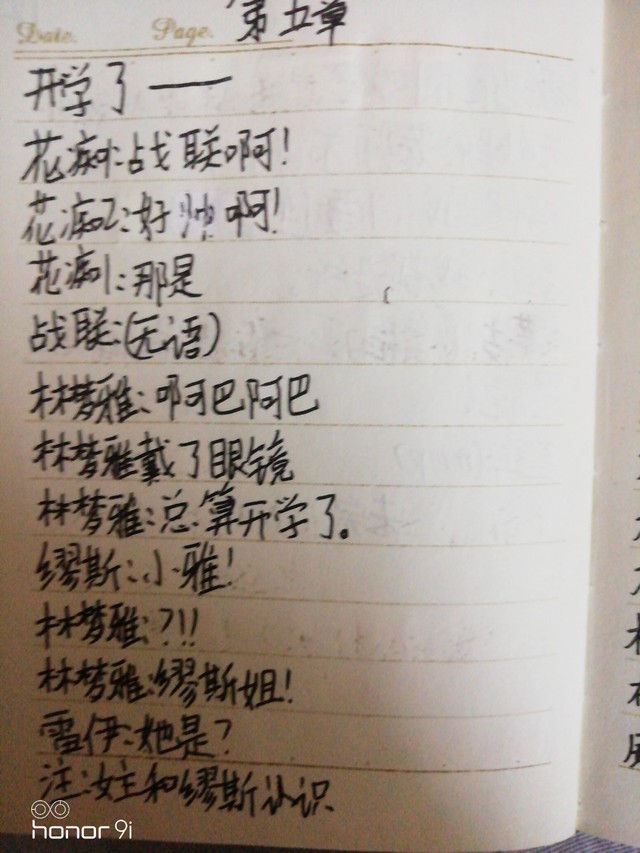 Date. Page. 第五章
开学了——
花痴1:战联啊!
花痴2:好帅啊!
花痴1:那是
战联:(无语)
林梦雅:啊巴阿巴
林梦雅戴了眼镜
林梦雅:总算开学了。
缪斯:小雅!
林梦雅:?!!
林梦雅:缪斯姐!
雷伊:她是?
注:女主和缪斯认识
honor 9i